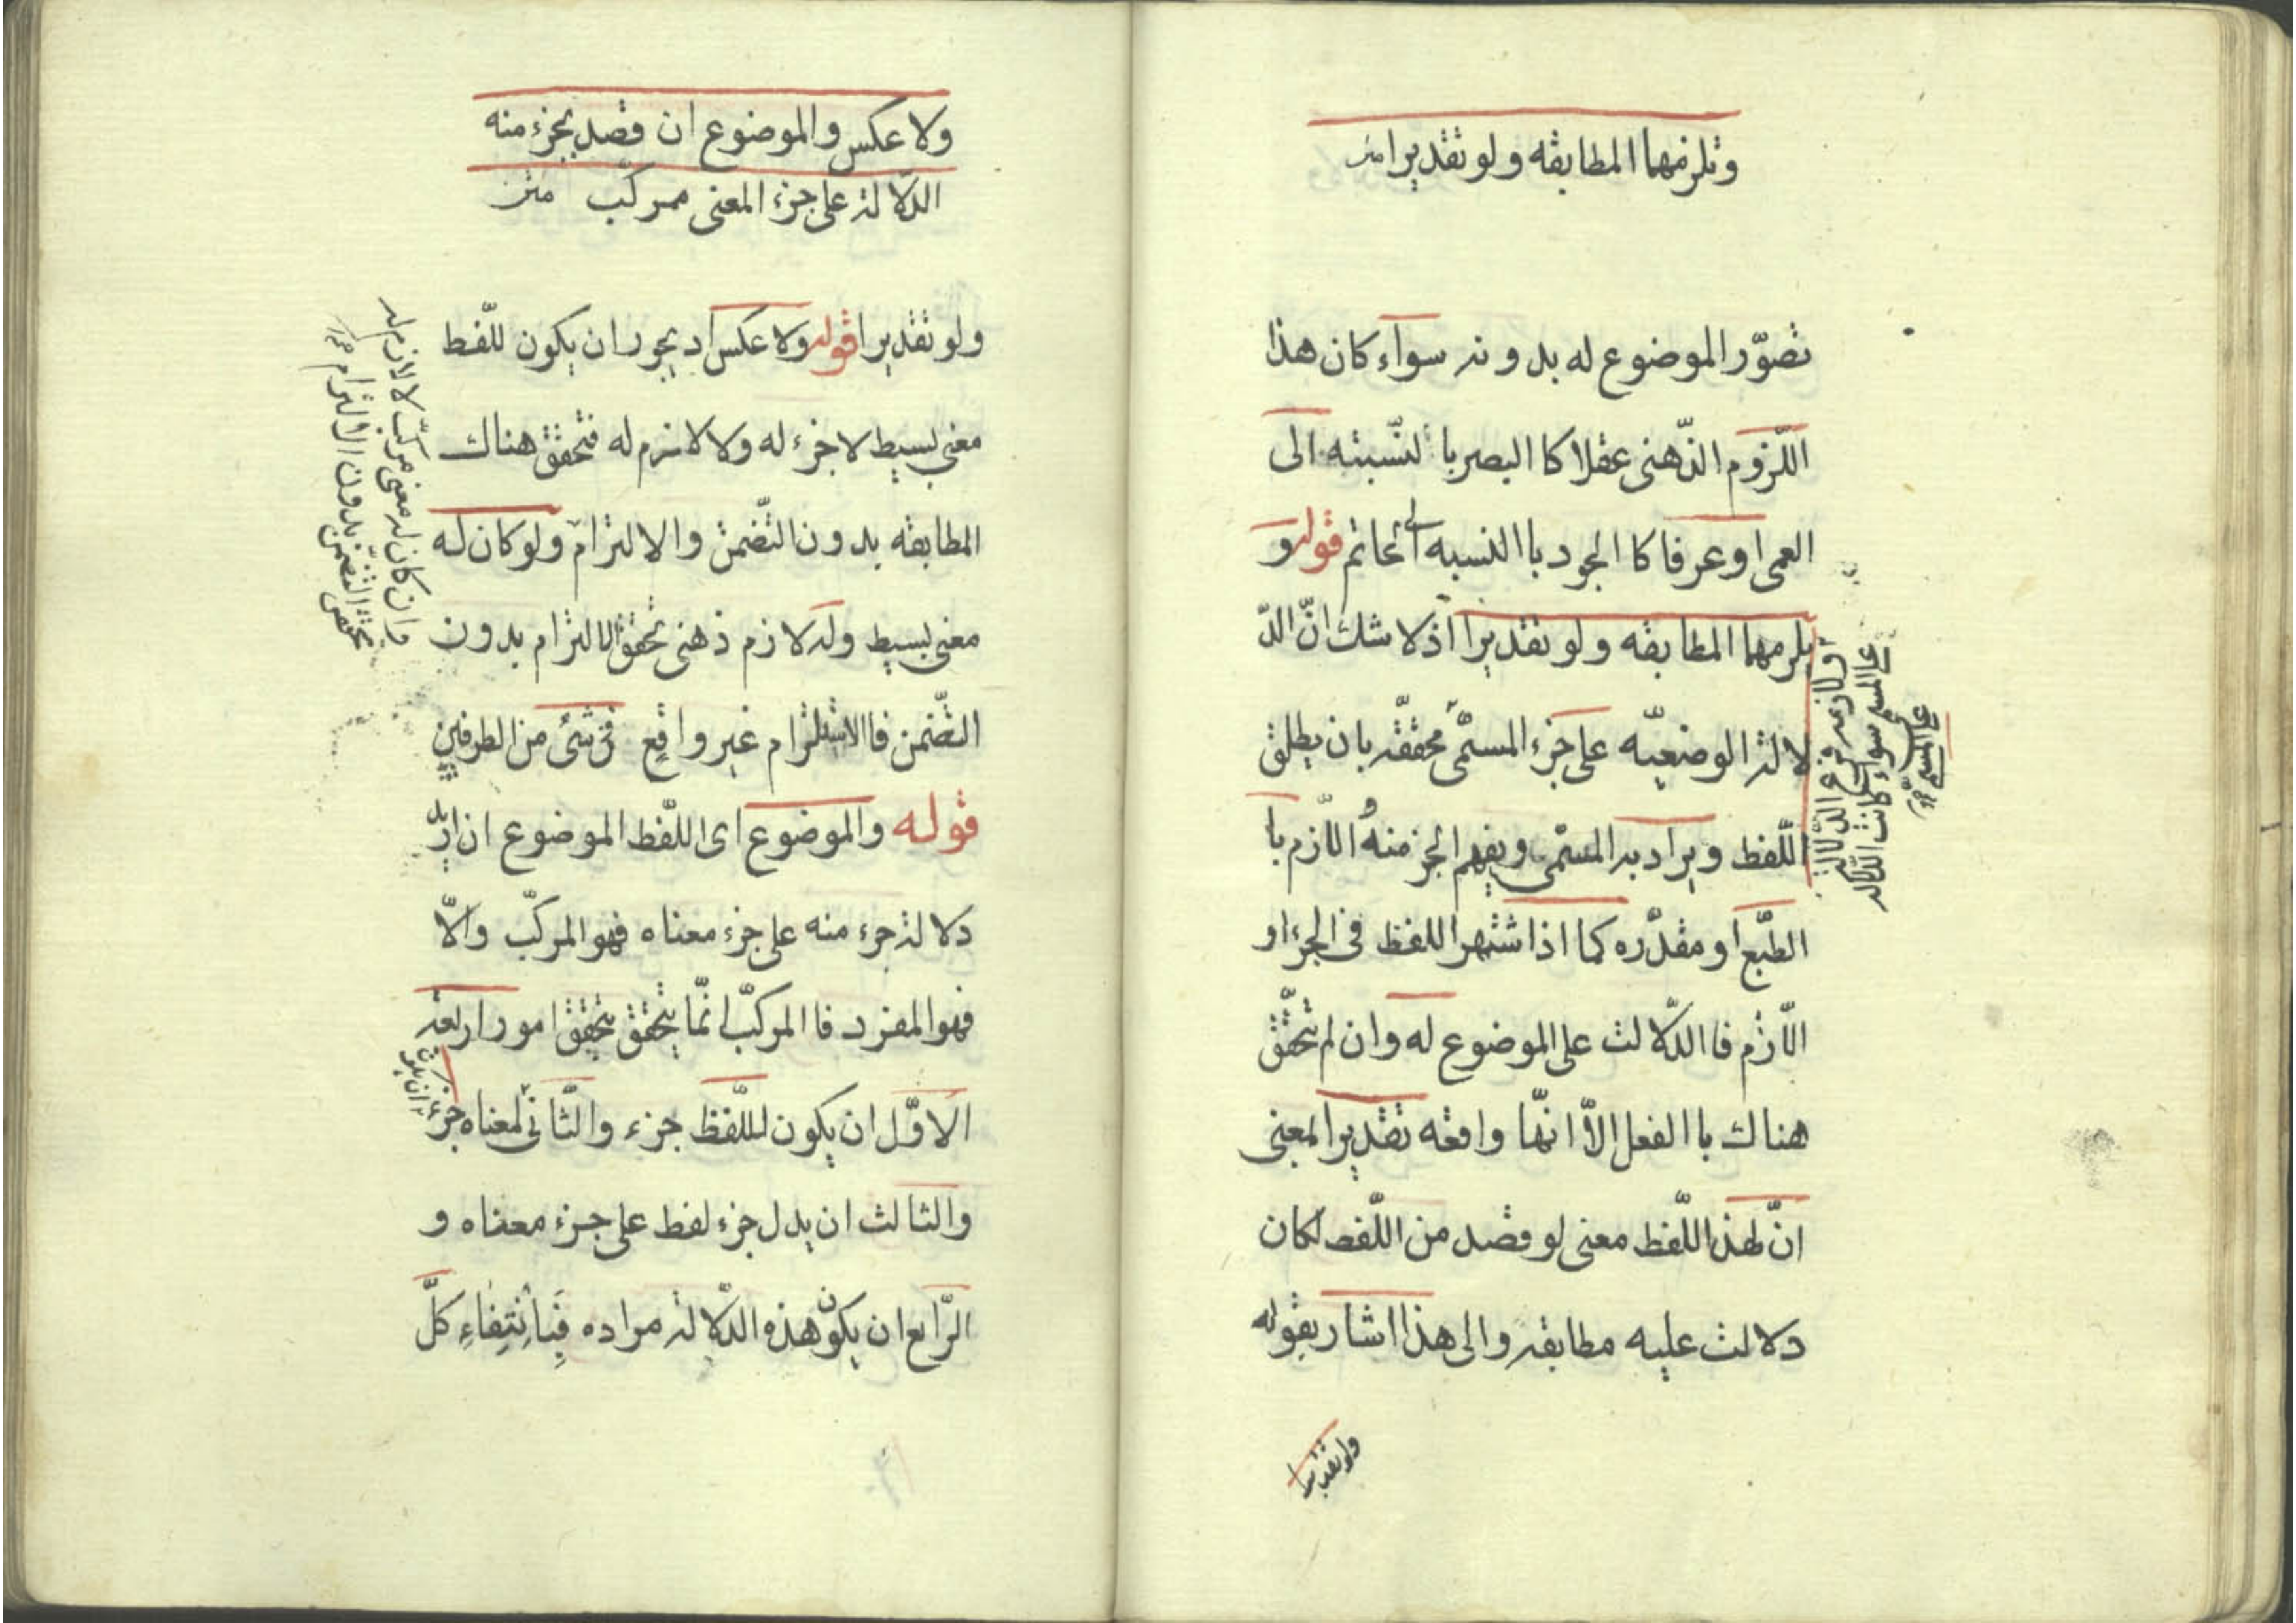 وتلزمهما المطابقه ولو تقديرا متن
تصوّر الموضوع له بدونه سواء كان هذا
اللّزوم الذّهنى عقلا كا البصر با لنّسبته الى
العمى او عرفا كا الجود با النسبه الى حاتم قوله و
يلزمهما المطابقه ولو تقديرا اذ لا شك انّ الدّ
لالة الوضعيّه على جزء المسمّى محققّه بان يطلق
اللّفظ ويراد به المسمّى ويفهم الجز منه و اللّازم با
الطّبع او مقدّره كما اذا شتهر اللفظ فى الجزء او
اللّازم فا الدّلالت على الموضوع له وان لم تحقّق
هناك با الفعل الاّ انّها واقعه تقديرا لمعنى
انّ لهذا اللّفظ معنى لو قصد من اللّفظ لكان
دلالت عليه مطابقه والى هذا اشار بقوله
ولو تقديرا
او لازمه فرع الدّلالة
على المسمى سواء كانت الدلاله
على المسمى
ولا عكس والموضوع ان قصد بجزء منه
الدّلالة على جزء المعنى مركّب متن
ولو تقديرا قوله ولا عكس اد يجوز ان يكون للّفط
معنى بسيط لا جزء له ولا لازم له فتحقق هناك
المطابقه بدون التّضمن والا لتزام ولو كان له
معنى بسيط وله لازم ذهنى تحقق الا لتزام بدون
التّضمن فا الاستلزام غير واقع فى شئ من الطرفين
قوله والموضوع اى اللّفط الموضوع ان اريد
دلالة جزء منه على جزء معناه فهو المركّب والاّ
فهو المفرد فا المركّب انّما يتحقق بتحقق امور اربعة
الاوّل ان يكون لللّفظ جزء والثّانى لمعناه جزء
والثالث ان يدل جزء لفط على جزء معناه و
الرّابع ان يكون هذه الدّلالة مراده فَبِاْنتِفاءِ كلّ
وان كان له معنى مركّب لا لازم له
تحقق التضمّن بدون الالتزام